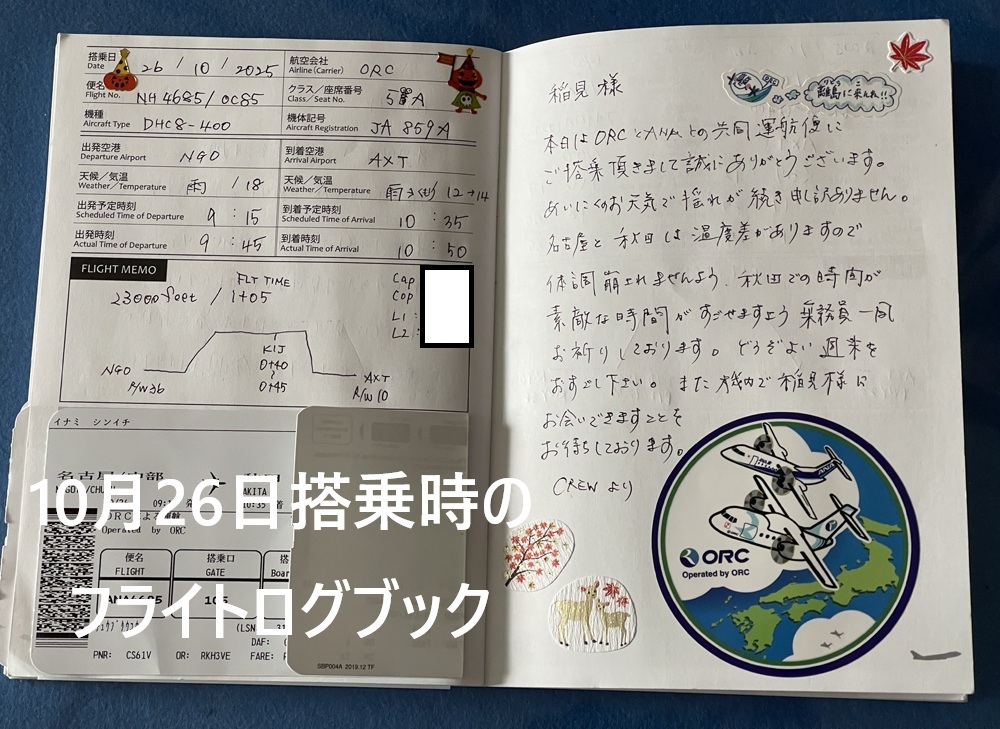 搭乗日 Date 26 / 10 / 2025 航空会社 Airline(Carrier) ORC
便名 Flight No. NH4685/OC85 クラス/座席番号 Class/Seat No. 5 A
機種 Aircraft Type DHC8-400 機体記号 Aircraft Registration JA 859A
出発空港 Departure Airport NGO 到着空港 Arrival Airport AXT
天候/気温 Weather/Temperature 雨 / 18 天候/気温 Weather/Temperature 12→14
出発予定時刻 Scheduled Time of Departure 9 : 15 到着予定時刻 Scheduled Time of Arrival 10 : 35
出発時刻 Actual Time of Departure 9 : 45 到着時刻 Actual Time of Arrival 10 : 50
FLIGHT MEMO
FLT TIME
23000feet / 1+05
Cap
Cop
L1 :
L2 :
KIJ
0+40
~
0+45
NGO
R/W36
AXT
R/W10
イナミ シンイチ
10月26日搭乗時の
フライトログブック
Operated by ORC
便名 FLIGHT
搭乗口 GATE
PNR: CS61V OR: RKH3VE FARE:
DAF:
SBP004A 2018.12 TF
稲見 様
離島に来んね!!
本日はORCとANAとの共同運航便に
ご搭乗頂きまして誠にありがとうございます。
あいにくのお天気で揺れが続き申し訳ありません。
名古屋と秋田は温度差がありますので
体調崩されませんよう、秋田での時間が
素敵な時間がすごせますよう乗務員一同
お祈りしております。どうぞよい週末を
おすごし下さい。また機内で稲見様に
お会いできますことを
お待ちしております。
CREWより
ORC
Operated by ORC